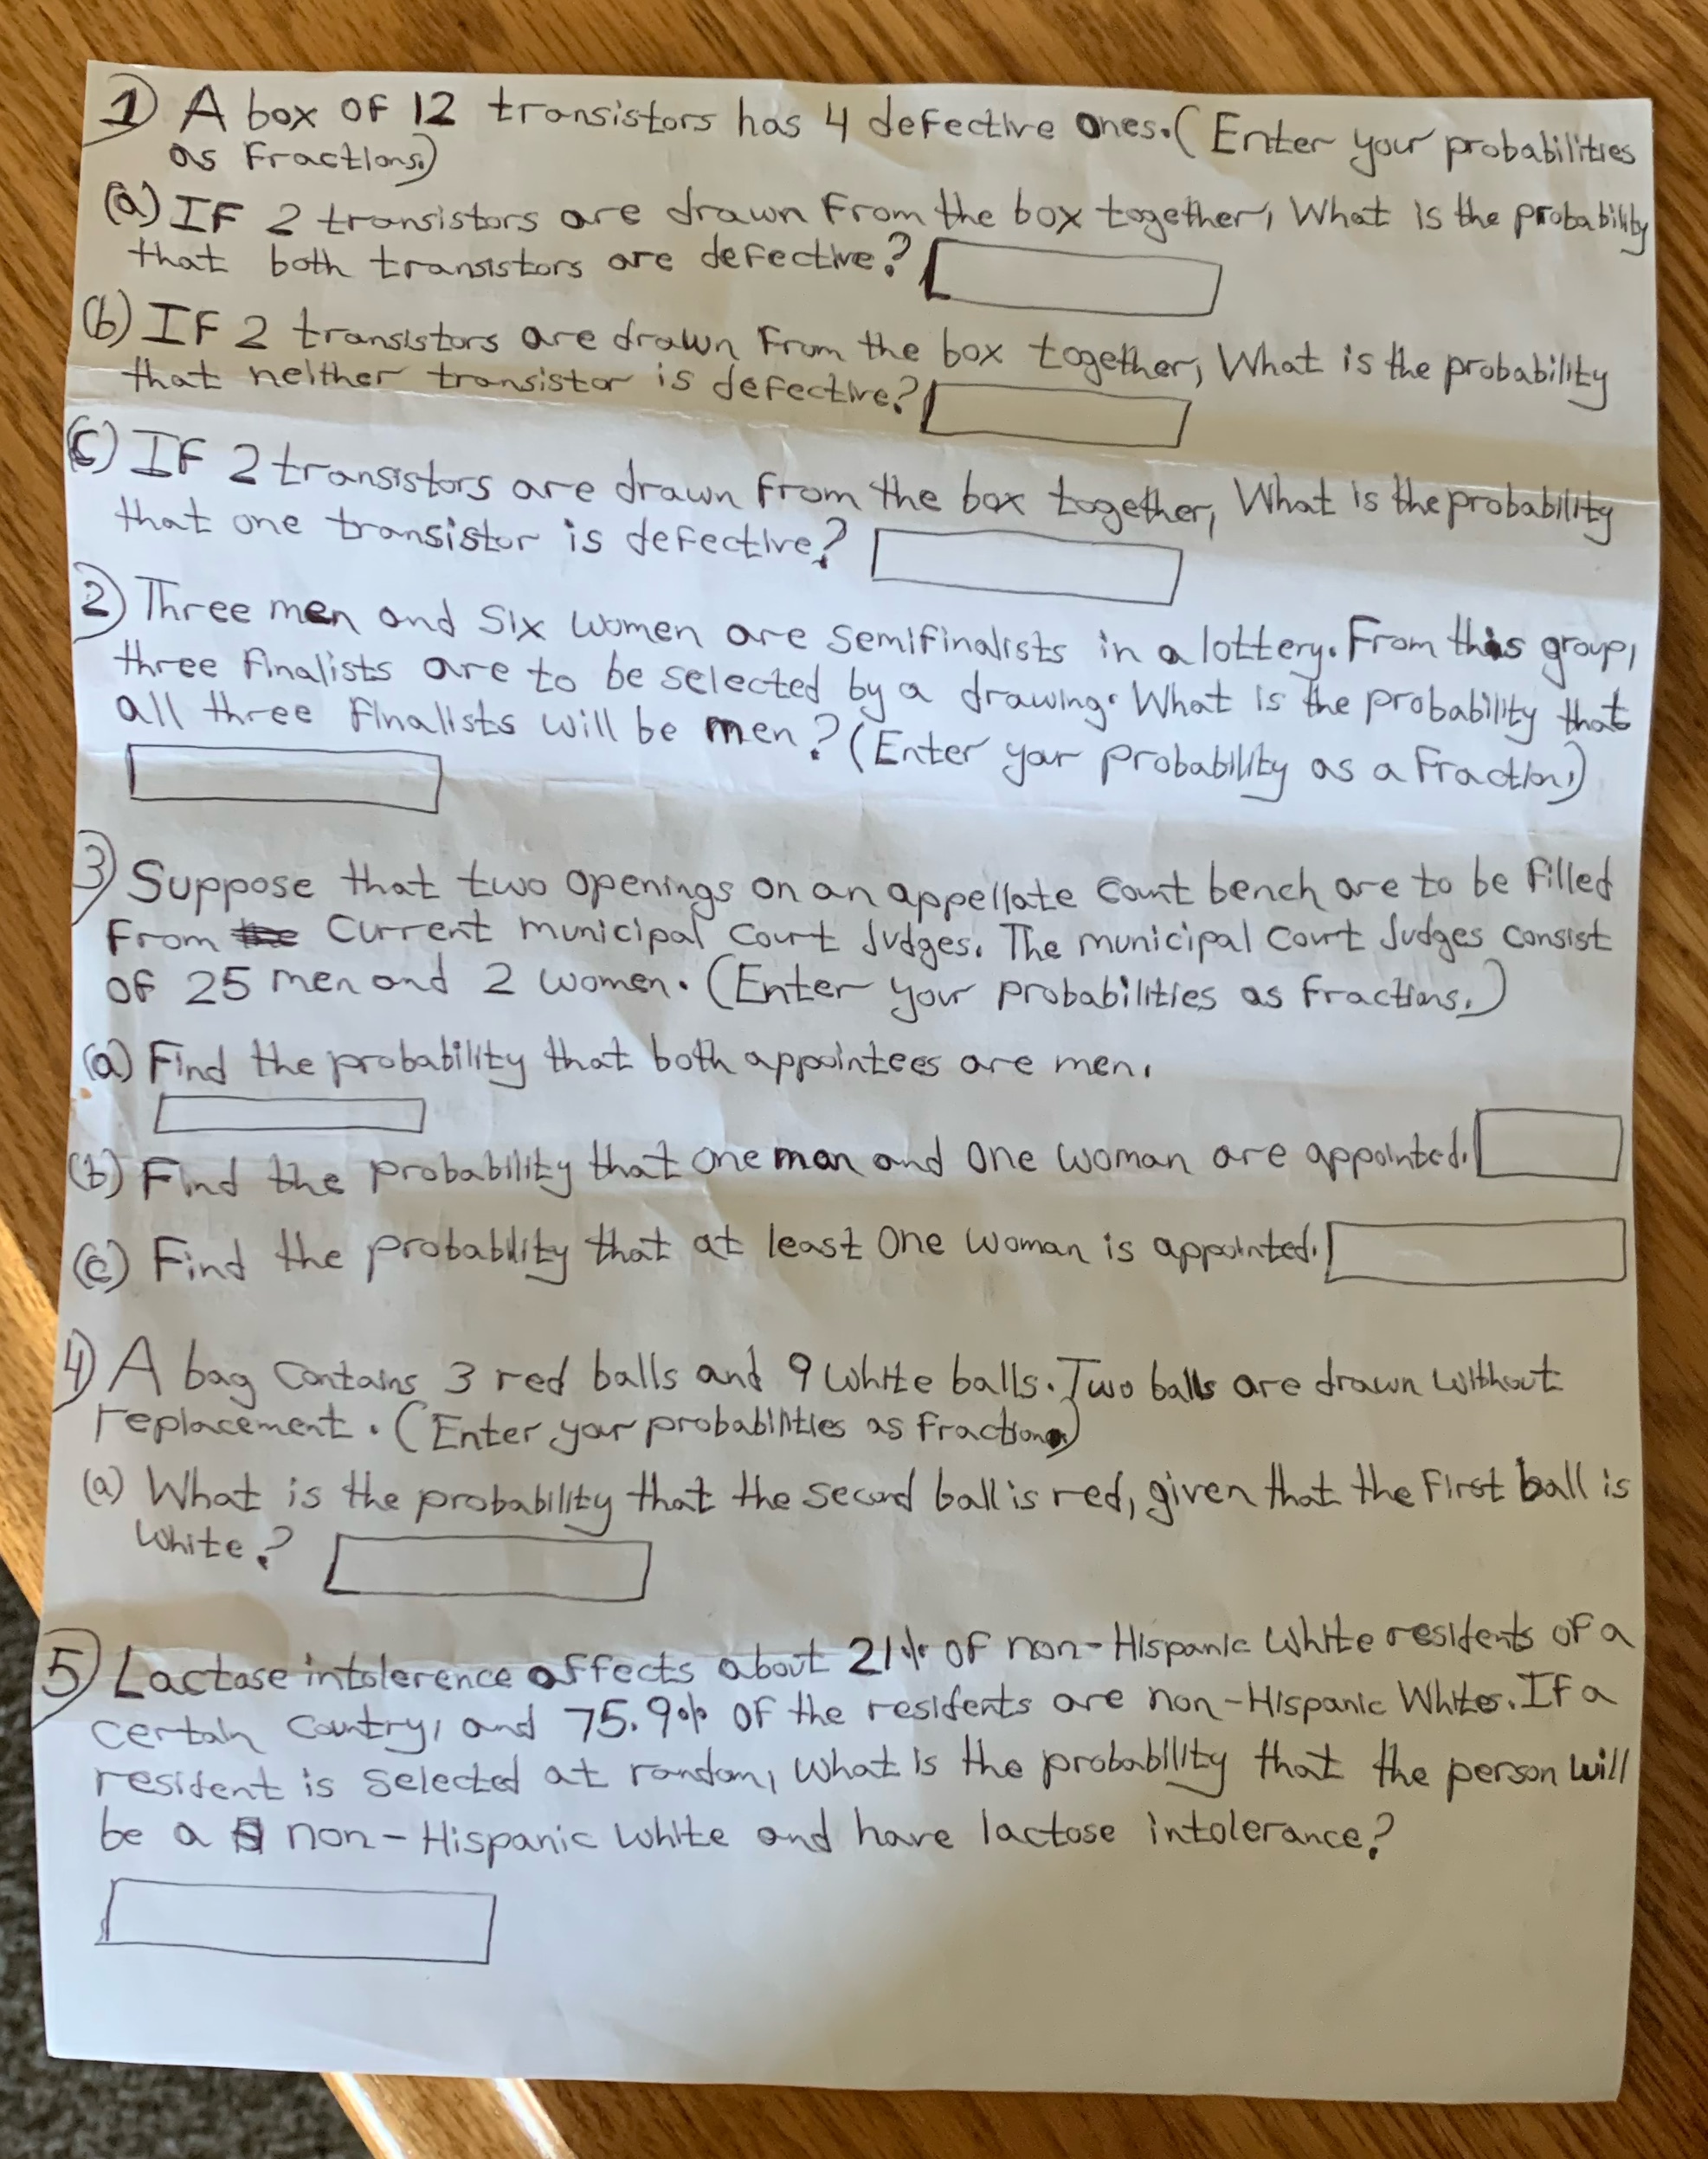 1) A box of 12 transistors has 4 defective ones. (Enter your probabilities
as fractions.)
(a) If 2 transistors are drawn from the box together, What is the probability
that both transistors are defective?
(b) If 2 transistors are drawn from the box together, What is the probability
that neither transistor is defective?
(c) If 2 transistors are drawn from the box together, What is the probability
that one transistor is defective?
2) Three men and six women are semifinalists in a lottery. From this group,
three finalists are to be selected by a drawing. What is the probability that
all three finalists will be men? (Enter your probability as a fraction.)
3) Suppose that two openings on an appellate court bench are to be filled
from the current municipal court judges. The municipal court Judges consist
of 25 men and 2 women. (Enter your probabilities as fractions.)
(a) Find the probability that both appointees are men.
(b) Find the probability that one man and one woman are appointed.
(c) Find the probability that at least one woman is appointed.
4) A bag contains 3 red balls and 9 white balls. Two balls are drawn without
replacement. (Enter your probabilities as fractions)
(a) What is the probability that the second ball is red, given that the first ball is
white?
5) Lactose intolerence affects about 21% of non-Hispanic White residents of a
certain country, and 75.9% of the residents are non-Hispanic Whites. If a
resident is selected at random, what is the probability that the person will
be a non-Hispanic white and have lactose intolerance?